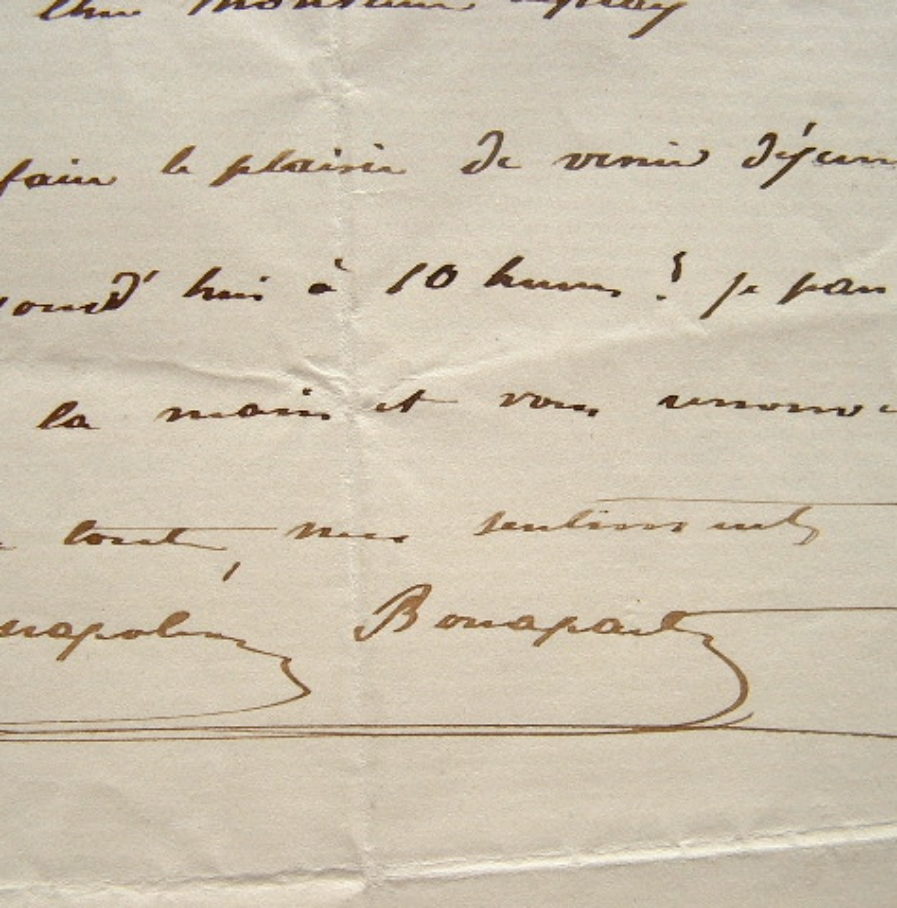 Cher Monsieur
faire le plaisir de venir déjeun
jourd'hui à 10 heures? je
la main et vous renouv
tout, mes sentiments
napoléon Bonaparte